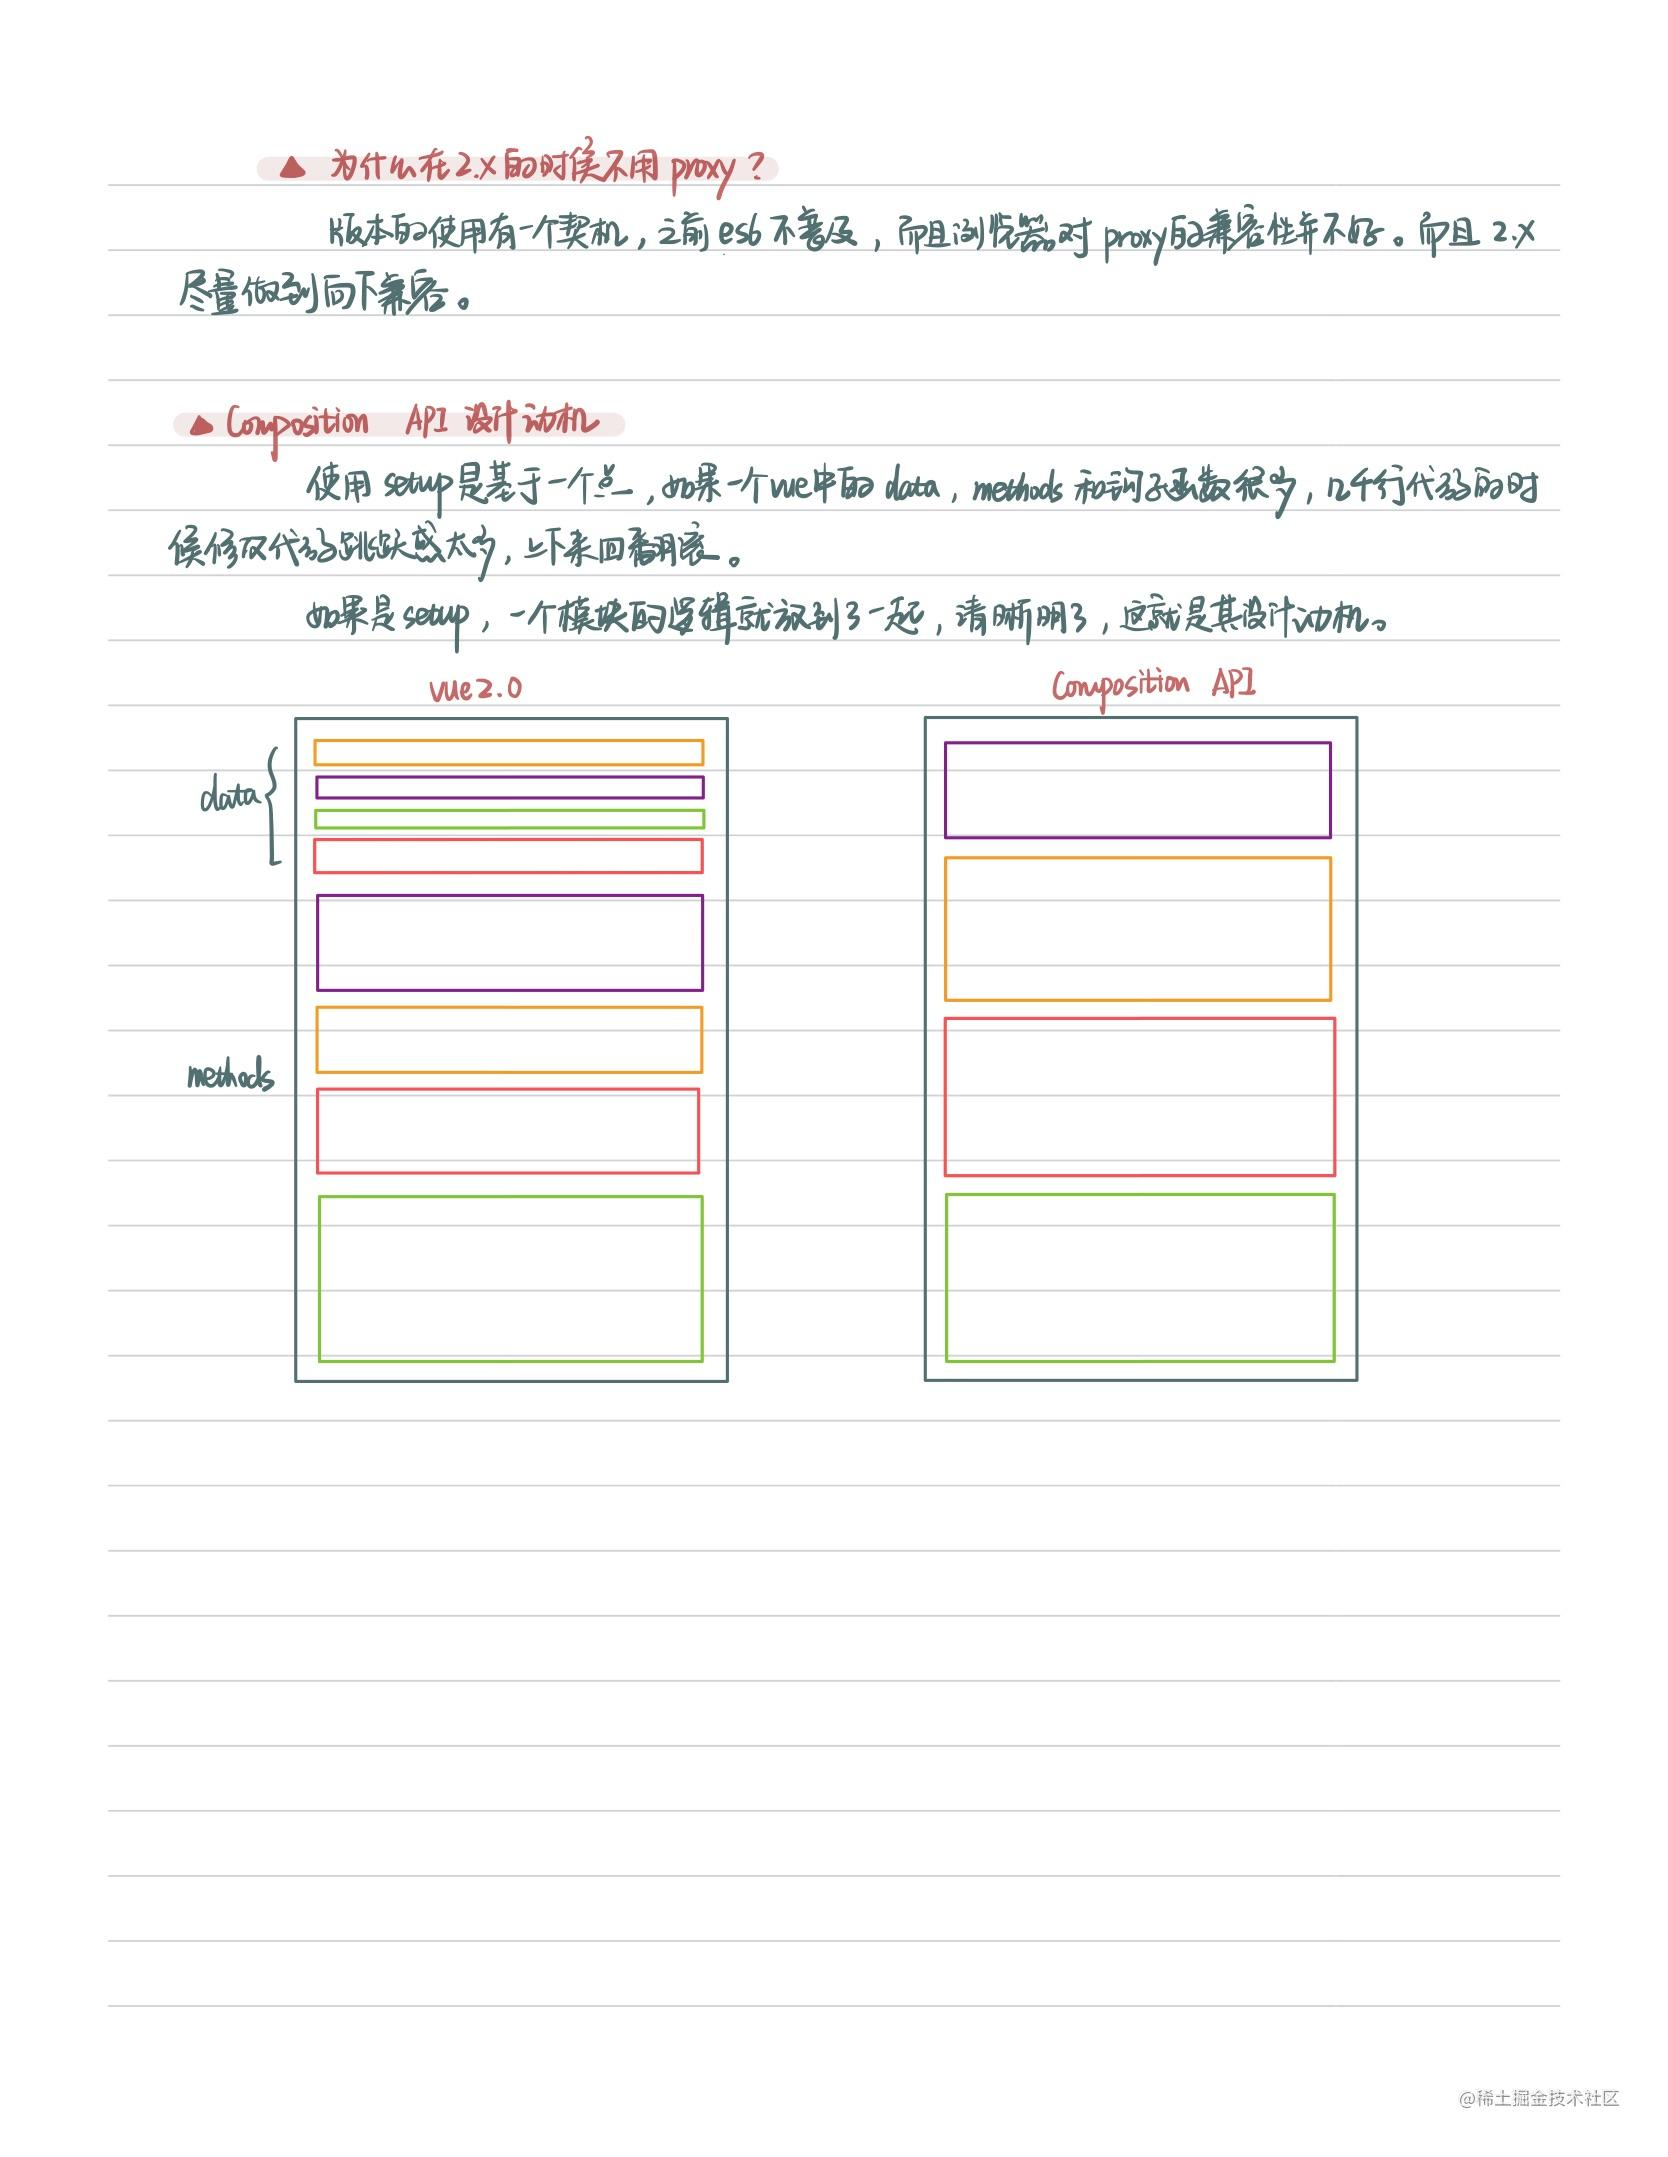 ▲ 为什么在2.x的时候不用proxy?
版本的使用有一个契机,之前es6不普及,而且浏览器对proxy的兼容性并不好。而且2.x
尽量做到向下兼容。
▲ Composition API 设计动机
使用setup是基于一个点,如果一个vue中的data,methods和钩子函数很多,几千行代码的时
候修改代码跳跃感太多,上下来回翻滚。
如果是setup,一个模块的逻辑就放到了一起,清晰明了,这就是其设计动机。
vue2.0
Composition API
data
methods
@稀土掘金技术社区